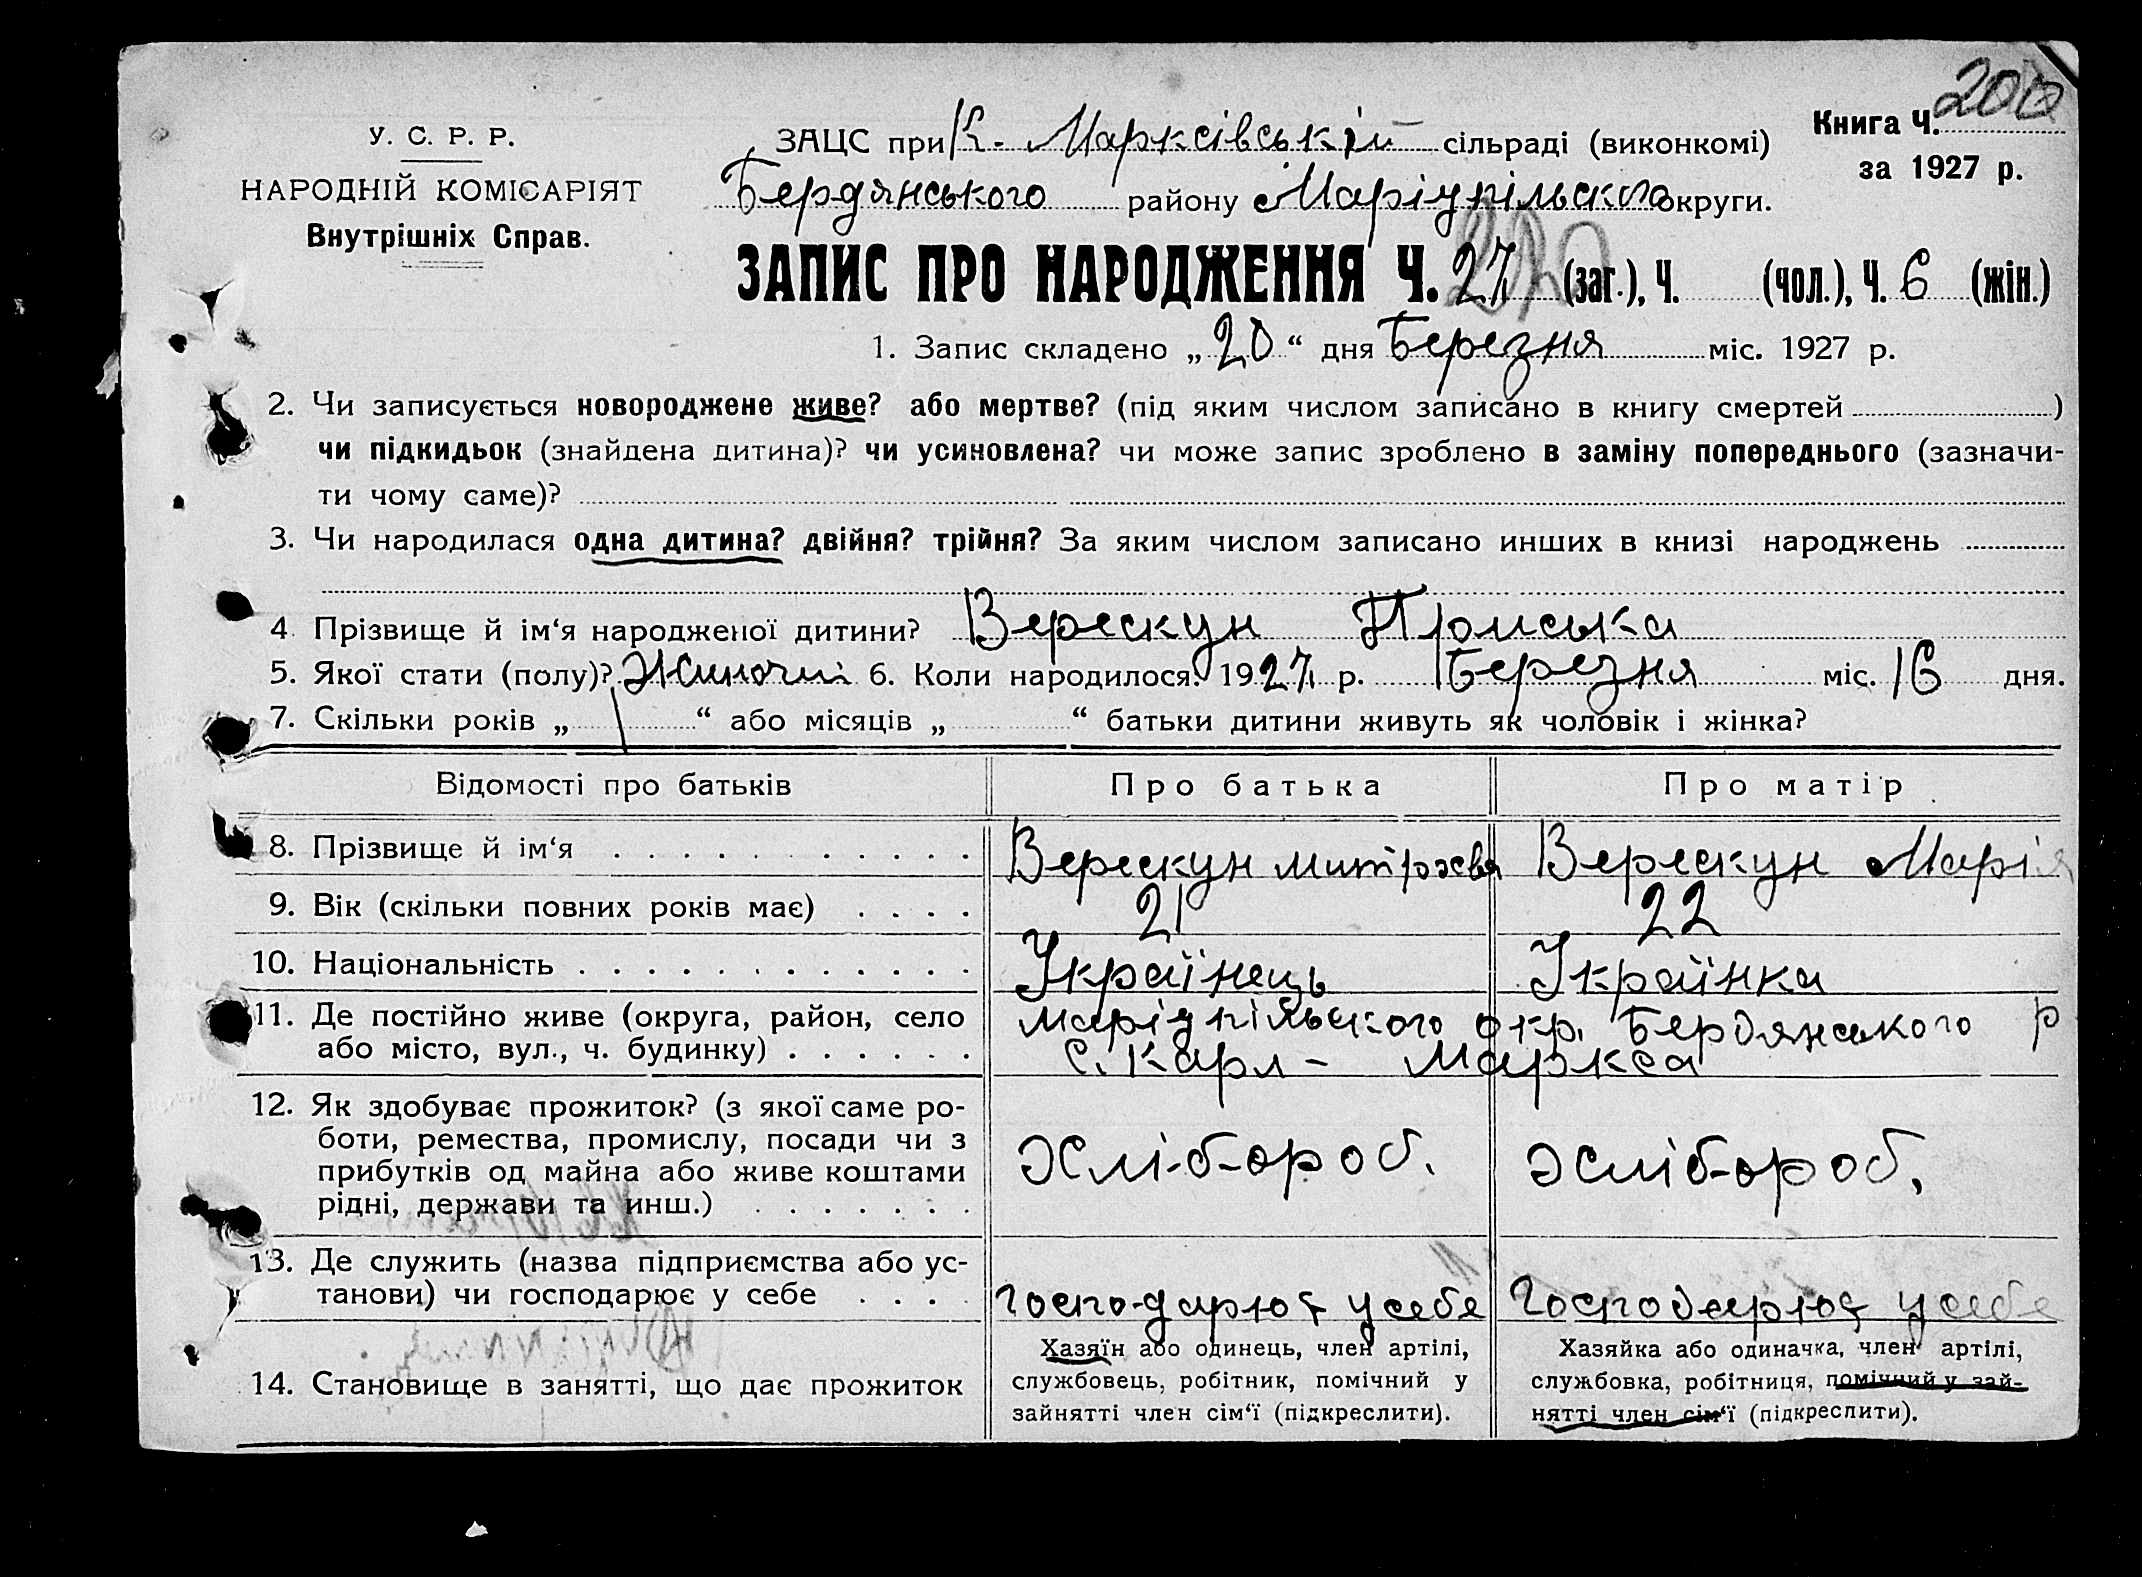 200
У. С. Р. Р.
НАРОДНІЙ КОМІСАРІЯТ
Внутрішніх Справ.
ЗАЦС при К. Марксівській сільраді (виконкомі)
Бердянського району Маріупільского округи.
Книга Ч.
за 1927 р.
ЗАПИС ПРО НАРОДЖЕННЯ Ч. 27 (заг.), Ч. (чол.), Ч. 6 (жін.)
1. Запис складено „20“ дня Березня міс. 1927 р.
2. Чи записується новороджене живе? або мертве? (під яким числом записано в книгу смертей )
чи підкидьок (знайдена дитина)? чи усиновлена? чи може запис зроблено в заміну попереднього (зазначи-
ти чому саме)?
3. Чи народилася одна дитина? двійня? трійня? За яким числом записано инших в книзі народжень
4. Прізвище й ім‘я народженої дитини? Верескун
5. Якої стати (полу)? Жиночиі 6. Коли народилося? 1927 р. Березня міс. 16 дня.
7. Скільки років „ “ або місяців „ “ батьки дитини живуть як чоловік і жінка?
Відомості про батьків Про батька Про матір
8. Прізвище й ім‘я . . . . . . . . . . . Верескун Верескун Марія
9. Вік (скільки повних років має) . . . . 21 22
10. Національність . . . . . . . . . . . . Українець Українка
11. Де постійно живе (округа, район, село Маріупільского окр. Бердянського р
або місто, вул., ч. будинку) . . . . . . с. Карл - Маркса
12. Як здобуває прожиток? (з якої саме ро-
боти, ремества, промислу, посади чи з Хлібороб. Хлібороб,
прибутків од майна або живе коштами
рідні, держави та инш.) . . . . . . .
13. Де служить (назва підприємства або ус-
танови) чи господарює у себе . . . . Господарює у себе Господарює у себе
14. Становище в занятті, що дає прожиток
Хазяїн або одинець, член артілі,
службовець, робітник, помічний у
зайнятті член сім‘ї (підкреслити).
Хазяйка або одиначка, член артілі,
службовка, робітниця, помічний у зай-
нятті член сім‘ї (підкреслити).